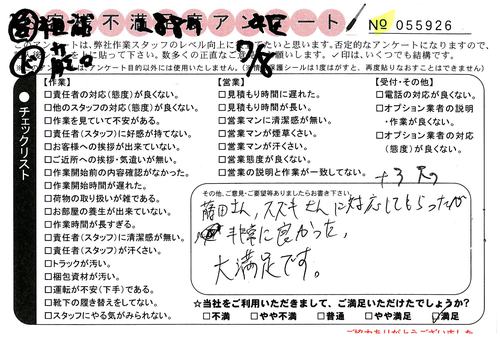 不満 アンケート
№ 055926
このアンケートは、弊社作業スタッフのレベル向上に
たいと思います。否定的なアンケートになりますので、
に貼って下さい。数多くの正直な
✓印は、いくつでも結構です。
アンケート目的以外には使用いたしません。
保護シールは1度はがすと、再度貼りなおすことはできません)
7/8
チェックリスト
【作業】
□責任者の対応(態度)が良くない。
□他のスタッフの対応(態度)が良くない。
□作業を見ていて不安がある。
□責任者(スタッフ)に好感が持てない。
□お客様への挨拶が出来ていない。
□ご近所への挨拶・気遣いが無い。
□作業開始前の内容確認がなかった。
□作業開始時間が遅れた。
□荷物の取り扱いが雑である。
□お部屋の養生が出来ていない。
□作業時間が長すぎる。
□責任者(スタッフ)に清潔感が無い。
□責任者(スタッフ)が汗くさい。
□トラックが汚い。
□梱包資材が汚い。
□運転が安全(下手)である。
□靴下の履き替えをしてない。
□スタッフにやる気がみられない。
【営業】
□見積もり時間に遅れた。
□見積もり時間が長い。
□営業マンに清潔感が無い。
□営業マンが煙草くさい。
□営業マンが汗くさい。
□営業態度が良くない。
□営業の説明と作業が一致してない。
【受付・その他】
□電話の対応が良くない。
□オプション業者の説明
・作業が良くない。
□オプション業者の対応
(態度)が良くない。
その他、ご意見・ご要望等ありましたらお書き下さい。
藤田さん,スズキさんに対応してもらったが
非常に良かった,
大満足です。
☆当社をご利用いただきまして、ご満足いただけたでしょうか?
□不満 □やや不満 □普通 □やや満足 ☑満足
ご協力ありがとうございました